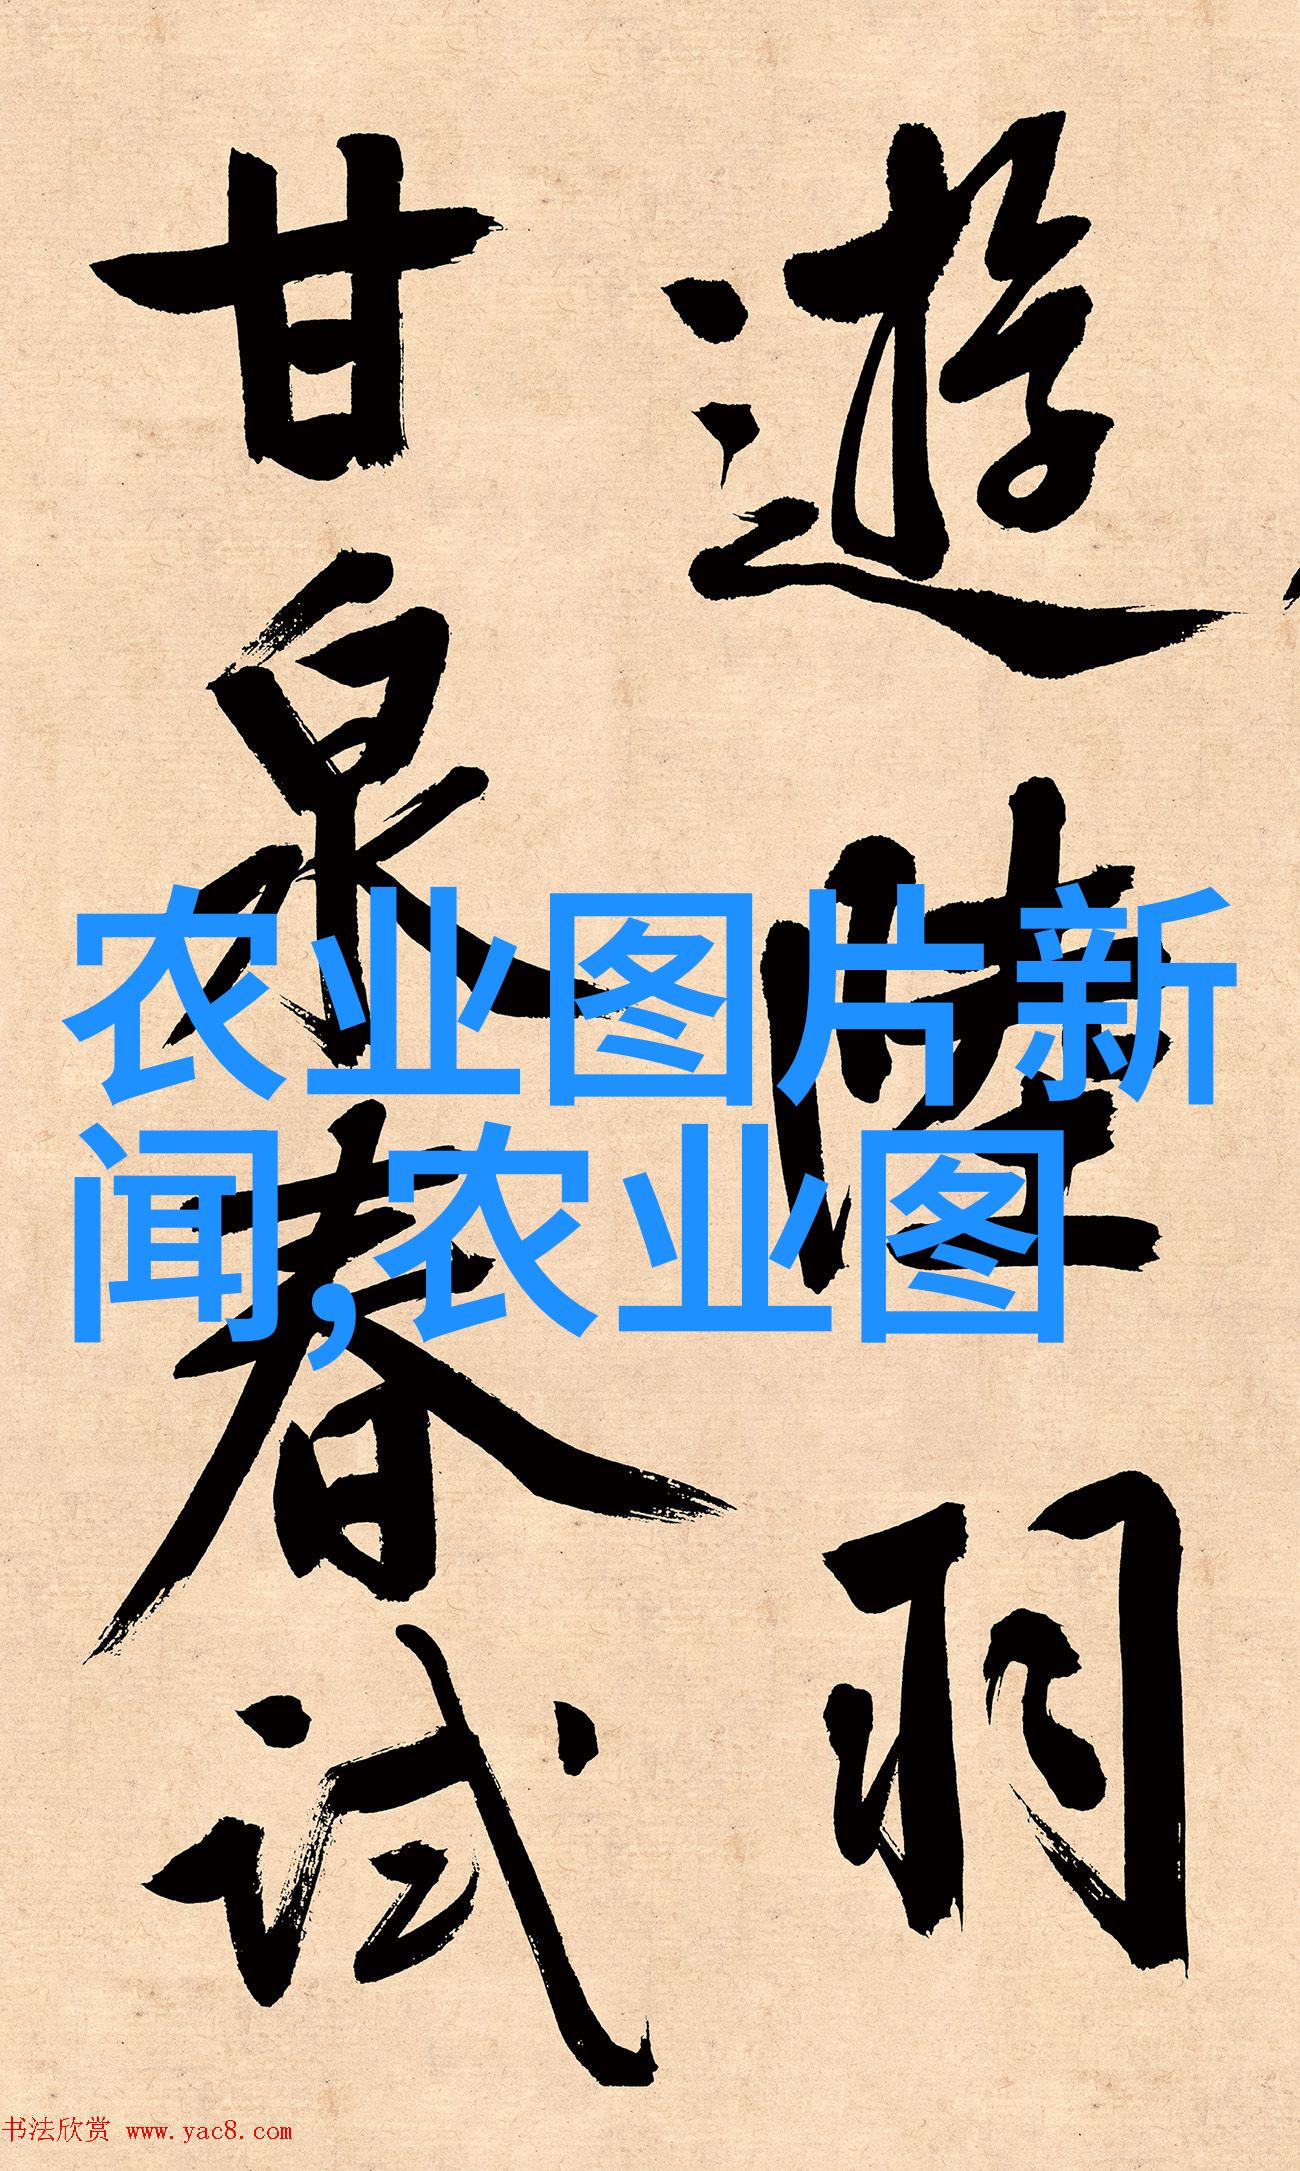 遊陸羽
甘泉春試
农业图片新
闻,农业图
书法欣赏 www.yac8.com